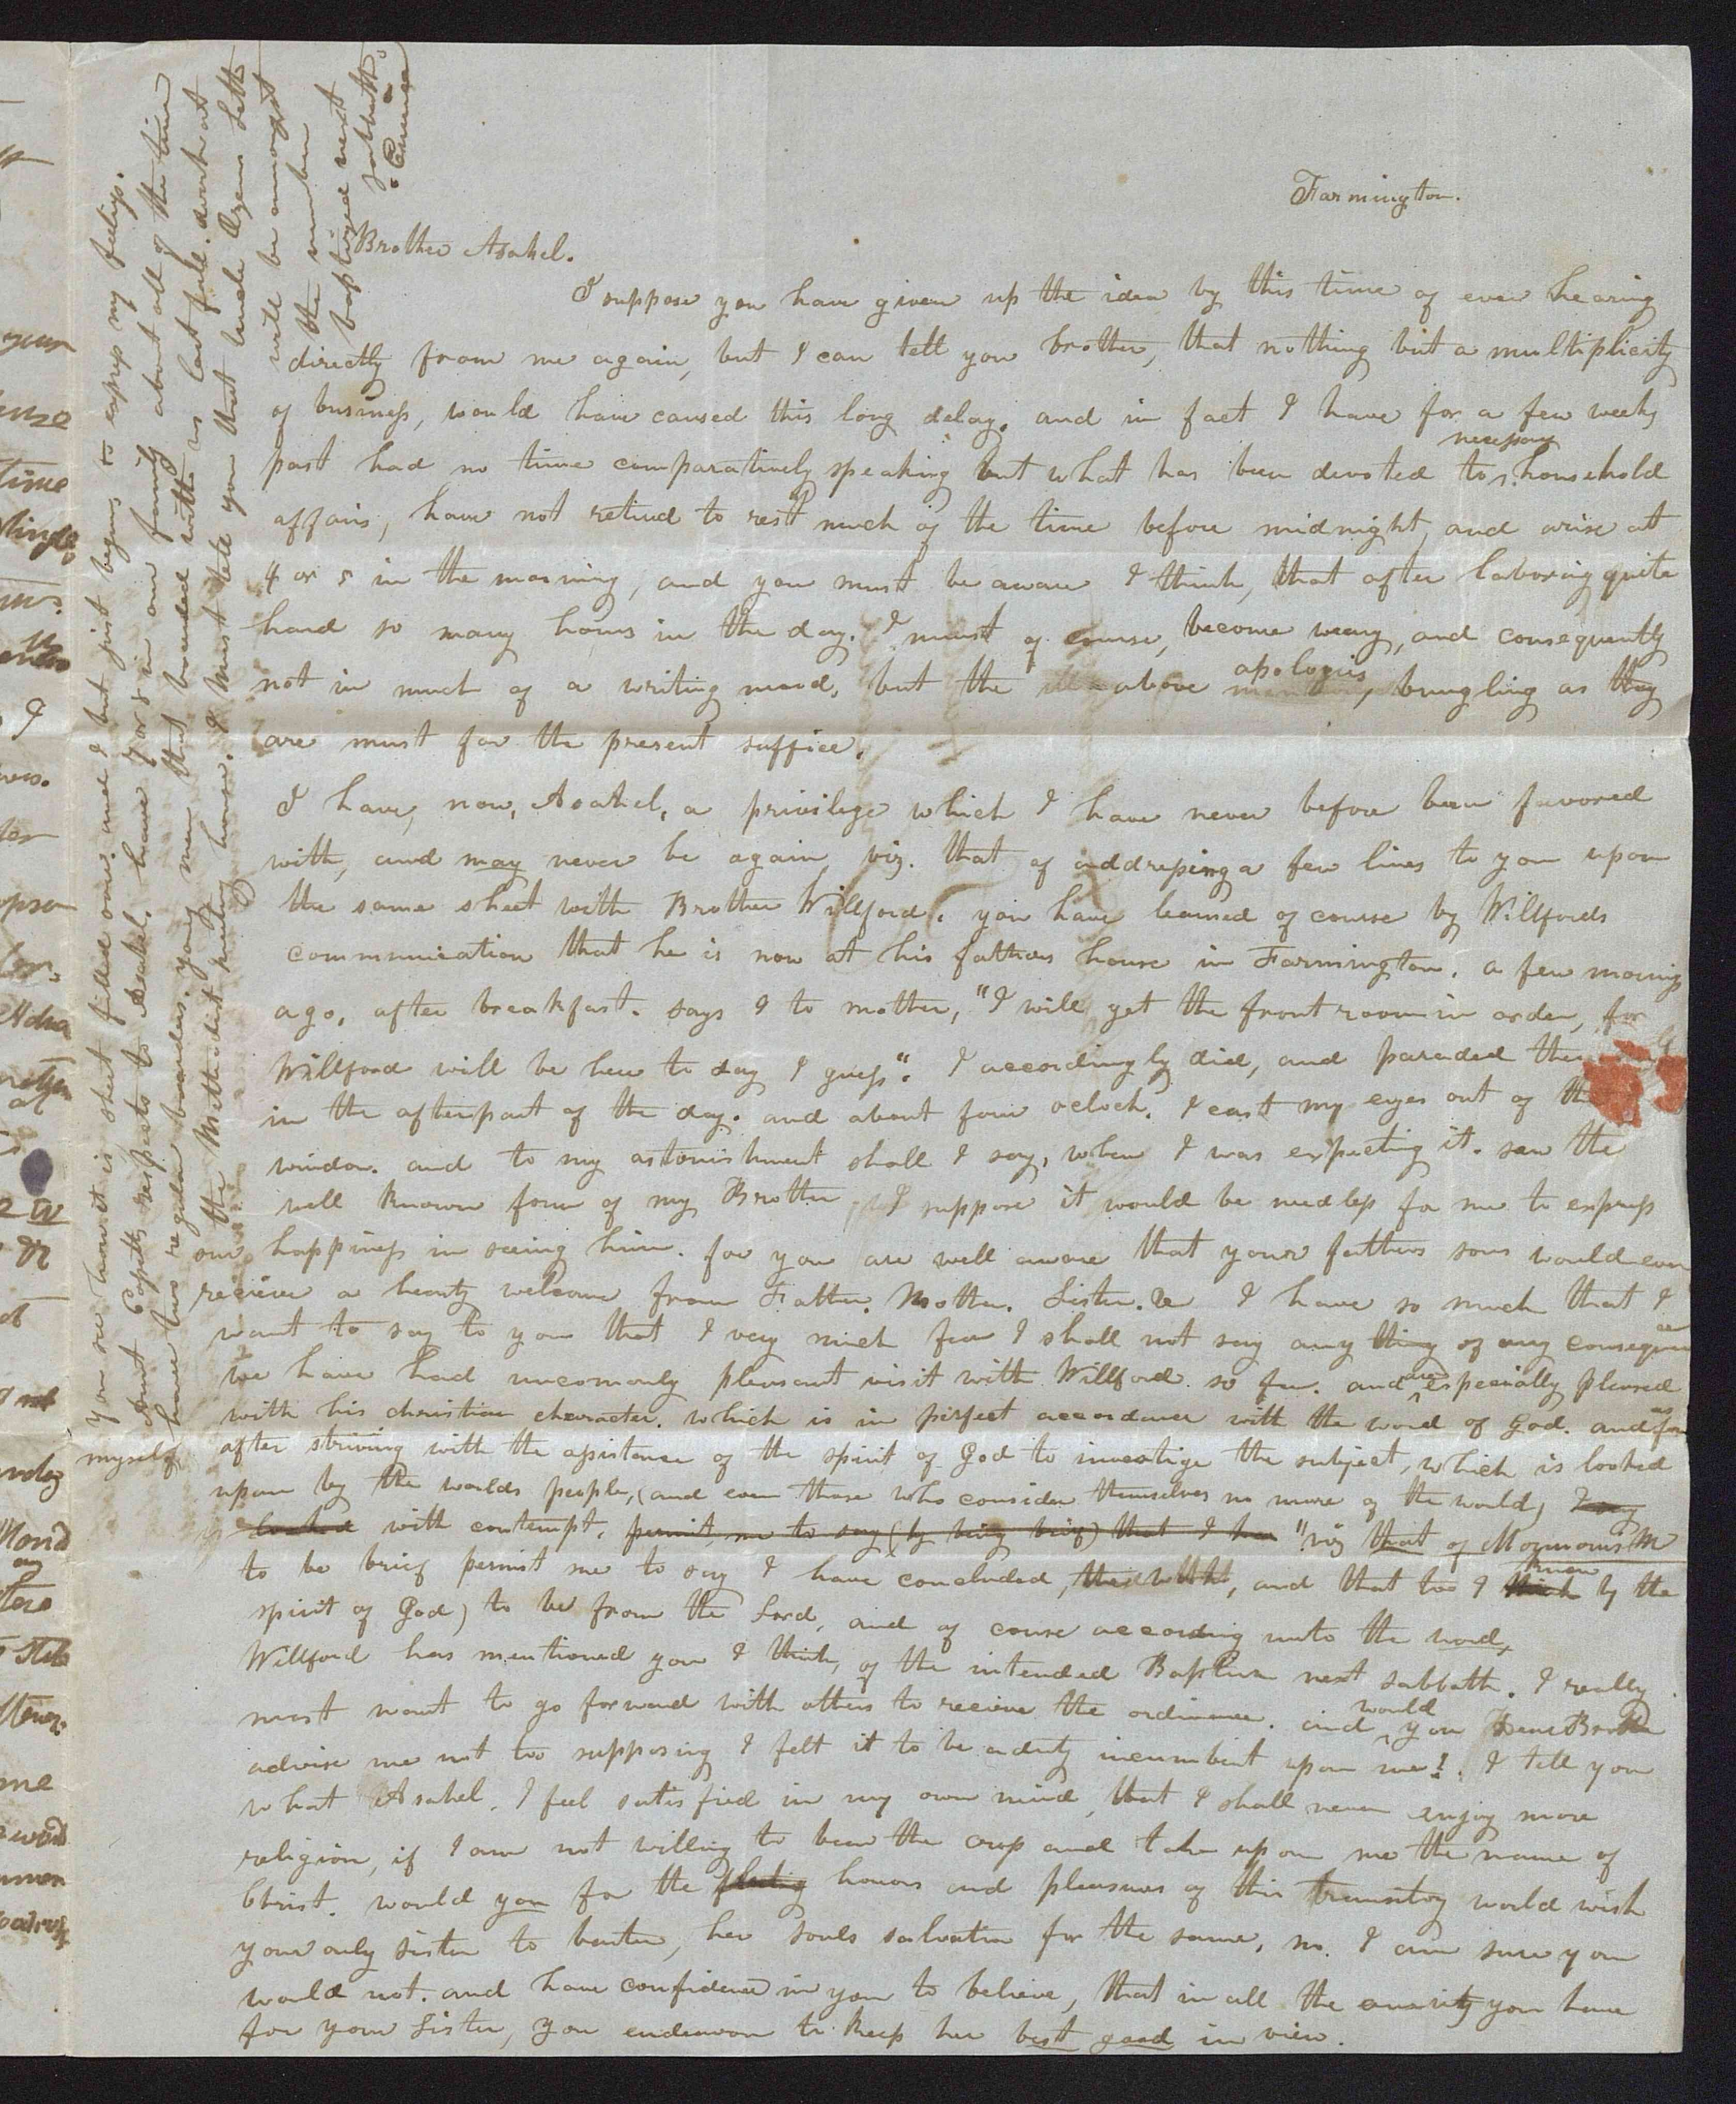 Farmington.
Brother Asahel.
I suppose you have given up the idea by this time of ever hearing
directly from me again, but I can tell you brother, that nothing but a multiplicity
of business, would have caused this long delay. and in fact I have for a few weeks
past had no time comparatively speaking but what has been devoted to necessary household
affairs, have not retired to rest much of the time before midnight, and arise at
4 or 5 in the morning, and you must be aware I think, that after laboring quite
hard so many hours in the day. I must of course, become weary, and consequently
not in much of a writing mood, but the above apologies, bungling as they
are must for the present suffice.
I have, now, Asahel, a privilege which I have never before been favored
with, and may never be again, viz. that of addressing a few lines to you upon
the same sheet with Brother Willford. you have learned of course by Willfords
communication that he is now at his fathers house in Farmington. a few mornings
ago, after breakfast. says I to mother, "I will get the front room in order, for
Willford will be here to day I guess". I accordingly did, and paraded
in the afterpart of the day. and about four oclock. I cast my eyes out of the
window. and to my astonishment shall I say, when I was expecting it. saw the
well known form of my Brother I suppose it would be needless for me to express
our happiness in seeing him. for you are well aware that your fathers sons would ever
recieve a hearty welcome from Father. Mother. Sister. &c I have so much that I
want to say to you that I very much fear I shall not say any thing of any consequence
we have had uncomonly pleasant visit with Willford. so far. and are especially pleased
with his christian character. which is in perfect accordance with the word of God. and as for
myself after striving with the assistance of the spirit of God to investige the subject, which is looked
upon by the worlds people, (and even those who consider themselves no more of the world) I say
looked with contempt. permit me to say (by being brief) that I have "viz that of Mormonism
to be brief permit me to say I have concluded, and that too I think know by the
spirit of God) to be from the Lord, and of course according unto the word,
Willford has mentioned you I think, of the intended Baptism next sabbath. I really
must want to go forward with others to recieve the ordinance. and would you Dear Brother
advise me not too supposing I felt it to be a duty incumbent upon me!. I tell you
what Asahel, I feel satisfied in my own mind, that I shall never enjoy more
religion, if I am not willing to bear the cross and take upon me the name of
Christ. would you for the fleeting honors and pleasures of this transitory world wish
your only sister to barter, her souls salvation for the same, no. I am sure you
would not. and have confidence in you to believe, that in all the anxiety you have
for your Sister, you endeavor to keep her best good in view.
You see how it is sheet filled once. and I but just begun to express my feelings.
Aunt respects to Asahel. have 7 or 8 in our family about all of the time
have two regular boarders. young men that boarded with us last fall. work at
the Methodist meeting house. I must tell you that Uncle Ozem
will be amongst
the number
baptized next
sabbath.
Eunice